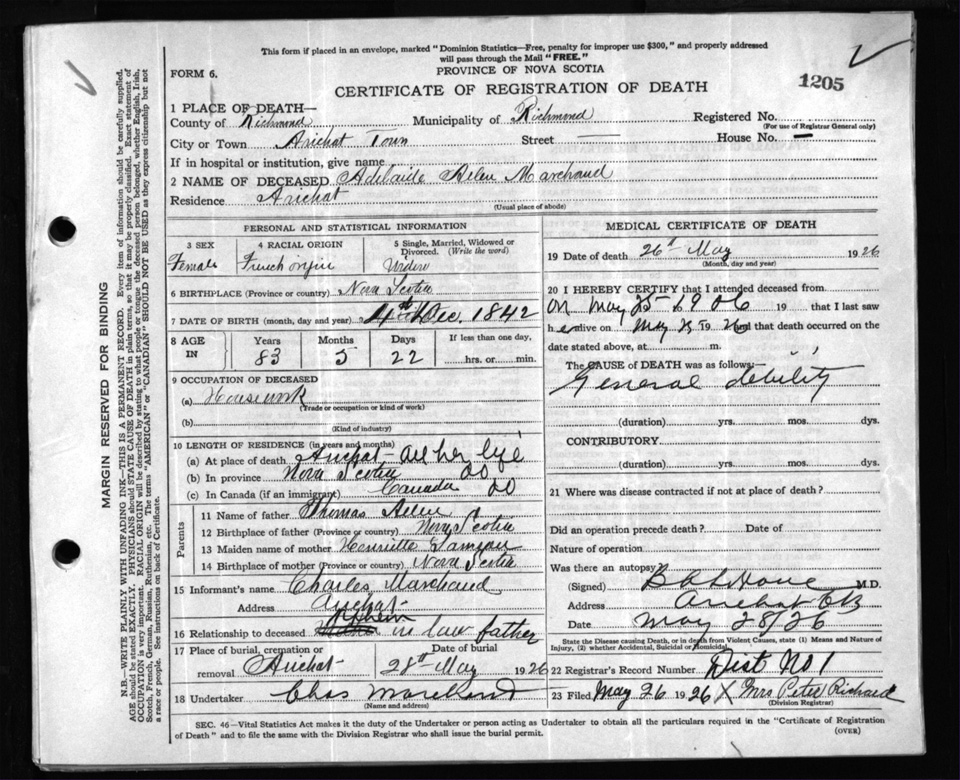 This form if placed in an envelope, marked "Dominion Statistics—Free, penalty for improper use $300," and properly addressed
will pass through the Mail "FREE."
PROVINCE OF NOVA SCOTIA
FORM 6.
CERTIFICATE OF REGISTRATION OF DEATH
1205
1 PLACE OF DEATH—
County of Richmond Municipality of Richmond Registered No.
(For use of Registrar General only)
City or Town Arichat Town Street — House No. —
If in hospital or institution, give name
2 NAME OF DECEASED Adelaide Marchand
Residence Arichat
(Usual place of abode)
PERSONAL AND STATISTICAL INFORMATION
3 SEX 4 RACIAL ORIGIN 5 Single, Married, Widowed or Divorced. (Write the word)
Female French
6 BIRTHPLACE (Province or country) Nova Scotia
7 DATE OF BIRTH (month, day and year) 4th Dec. 1842
8 AGE IN Years Months Days If less than one day,
83 5 22 hrs. or min.
9 OCCUPATION OF DECEASED
(a) Housework
(Trade or occupation or kind of work)
(b)
(Kind of industry)
10 LENGTH OF RESIDENCE (in years and months)
(a) At place of death Arichat - all her life
(b) In province Nova Scotia DO
(c) In Canada (if an immigrant) Canada DO
Parents
11 Name of father Thomas
12 Birthplace of father (Province or country) Nova Scotia
13 Maiden name of mother
14 Birthplace of mother (Province or country) Nova Scotia
15 Informant's name Charles Marchand
Address Arichat
16 Relationship to deceased in law father
17 Place of burial, cremation or removal Arichat Date of burial 28th May 1926
18 Undertaker Chas Marchand
(Name and address)
MEDICAL CERTIFICATE OF DEATH
19 Date of death 26th May 1926
(Month, day and year)
20 I HEREBY CERTIFY that I attended deceased from
on May 25 19 to 19 that I last saw
her alive on May 25 19 26 and that death occurred on the
date stated above, at m.
The CAUSE OF DEATH was as follows:
General debility
(duration) yrs. mos. dys.
CONTRIBUTORY
(duration) yrs. mos. dys.
21 Where was disease contracted if not at place of death?
Did an operation precede death? Date of
Nature of operation
Was there an autopsy?
(Signed) M.D.
Address Arichat CB
Date May 28/26
State the Disease causing Death, or in death from Violent Causes, state (1) Means and Nature of
Injury, (2) whether Accidental, Suicidal or Homicidal.
22 Registrar's Record Number Dist No 1
23 Filed May 26 1926 X Mrs Peter Richard
(Division Registrar)
SEC. 46—Vital Statistics Act makes it the duty of the Undertaker or person acting as Undertaker to obtain all the particulars required in the "Certificate of Registration
of Death" and to file the same with the Division Registrar who shall issue the burial permit.
(OVER)
MARGIN RESERVED FOR BINDING
N.B.—WRITE PLAINLY WITH UNFADING INK—THIS IS A PERMANENT RECORD. Every item of information should be carefully supplied.
AGE should be stated EXACTLY. PHYSICIANS should STATE CAUSE OF DEATH in plain terms, so that it may be properly classified. Exact statement of
OCCUPATION is very important. RACIAL ORIGIN will be described by stating to what people or tongue the deceased person belonged, whether English, Irish,
Scotch, French, German, Russian, Ruthenian, etc. The terms "AMERICAN" or "CANADIAN" SHOULD NOT BE USED as they express citizenship but not
a race or people. See instructions on back of Certificate.